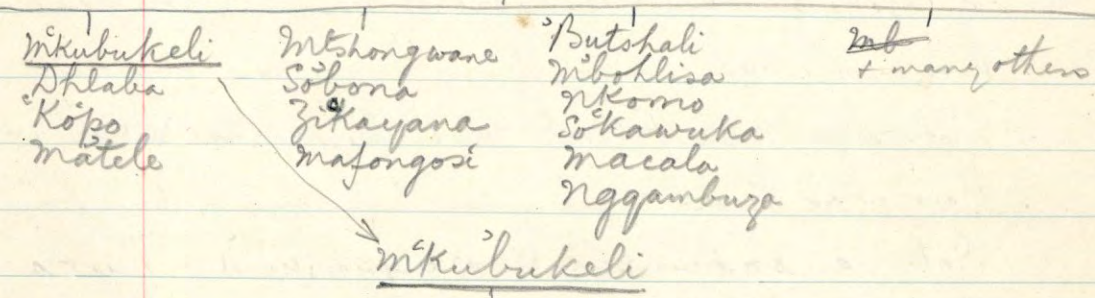 M'Kubukeli
Dhlaba
'Kopo
Matele
Mtshongwane
Sobona
Zikayana
Mafongosi
'Butshali
M'bohlisa
Nkomo
So'kawuka
Macala
Nggambuza
mb
+ many others
M'Ku'bukeli